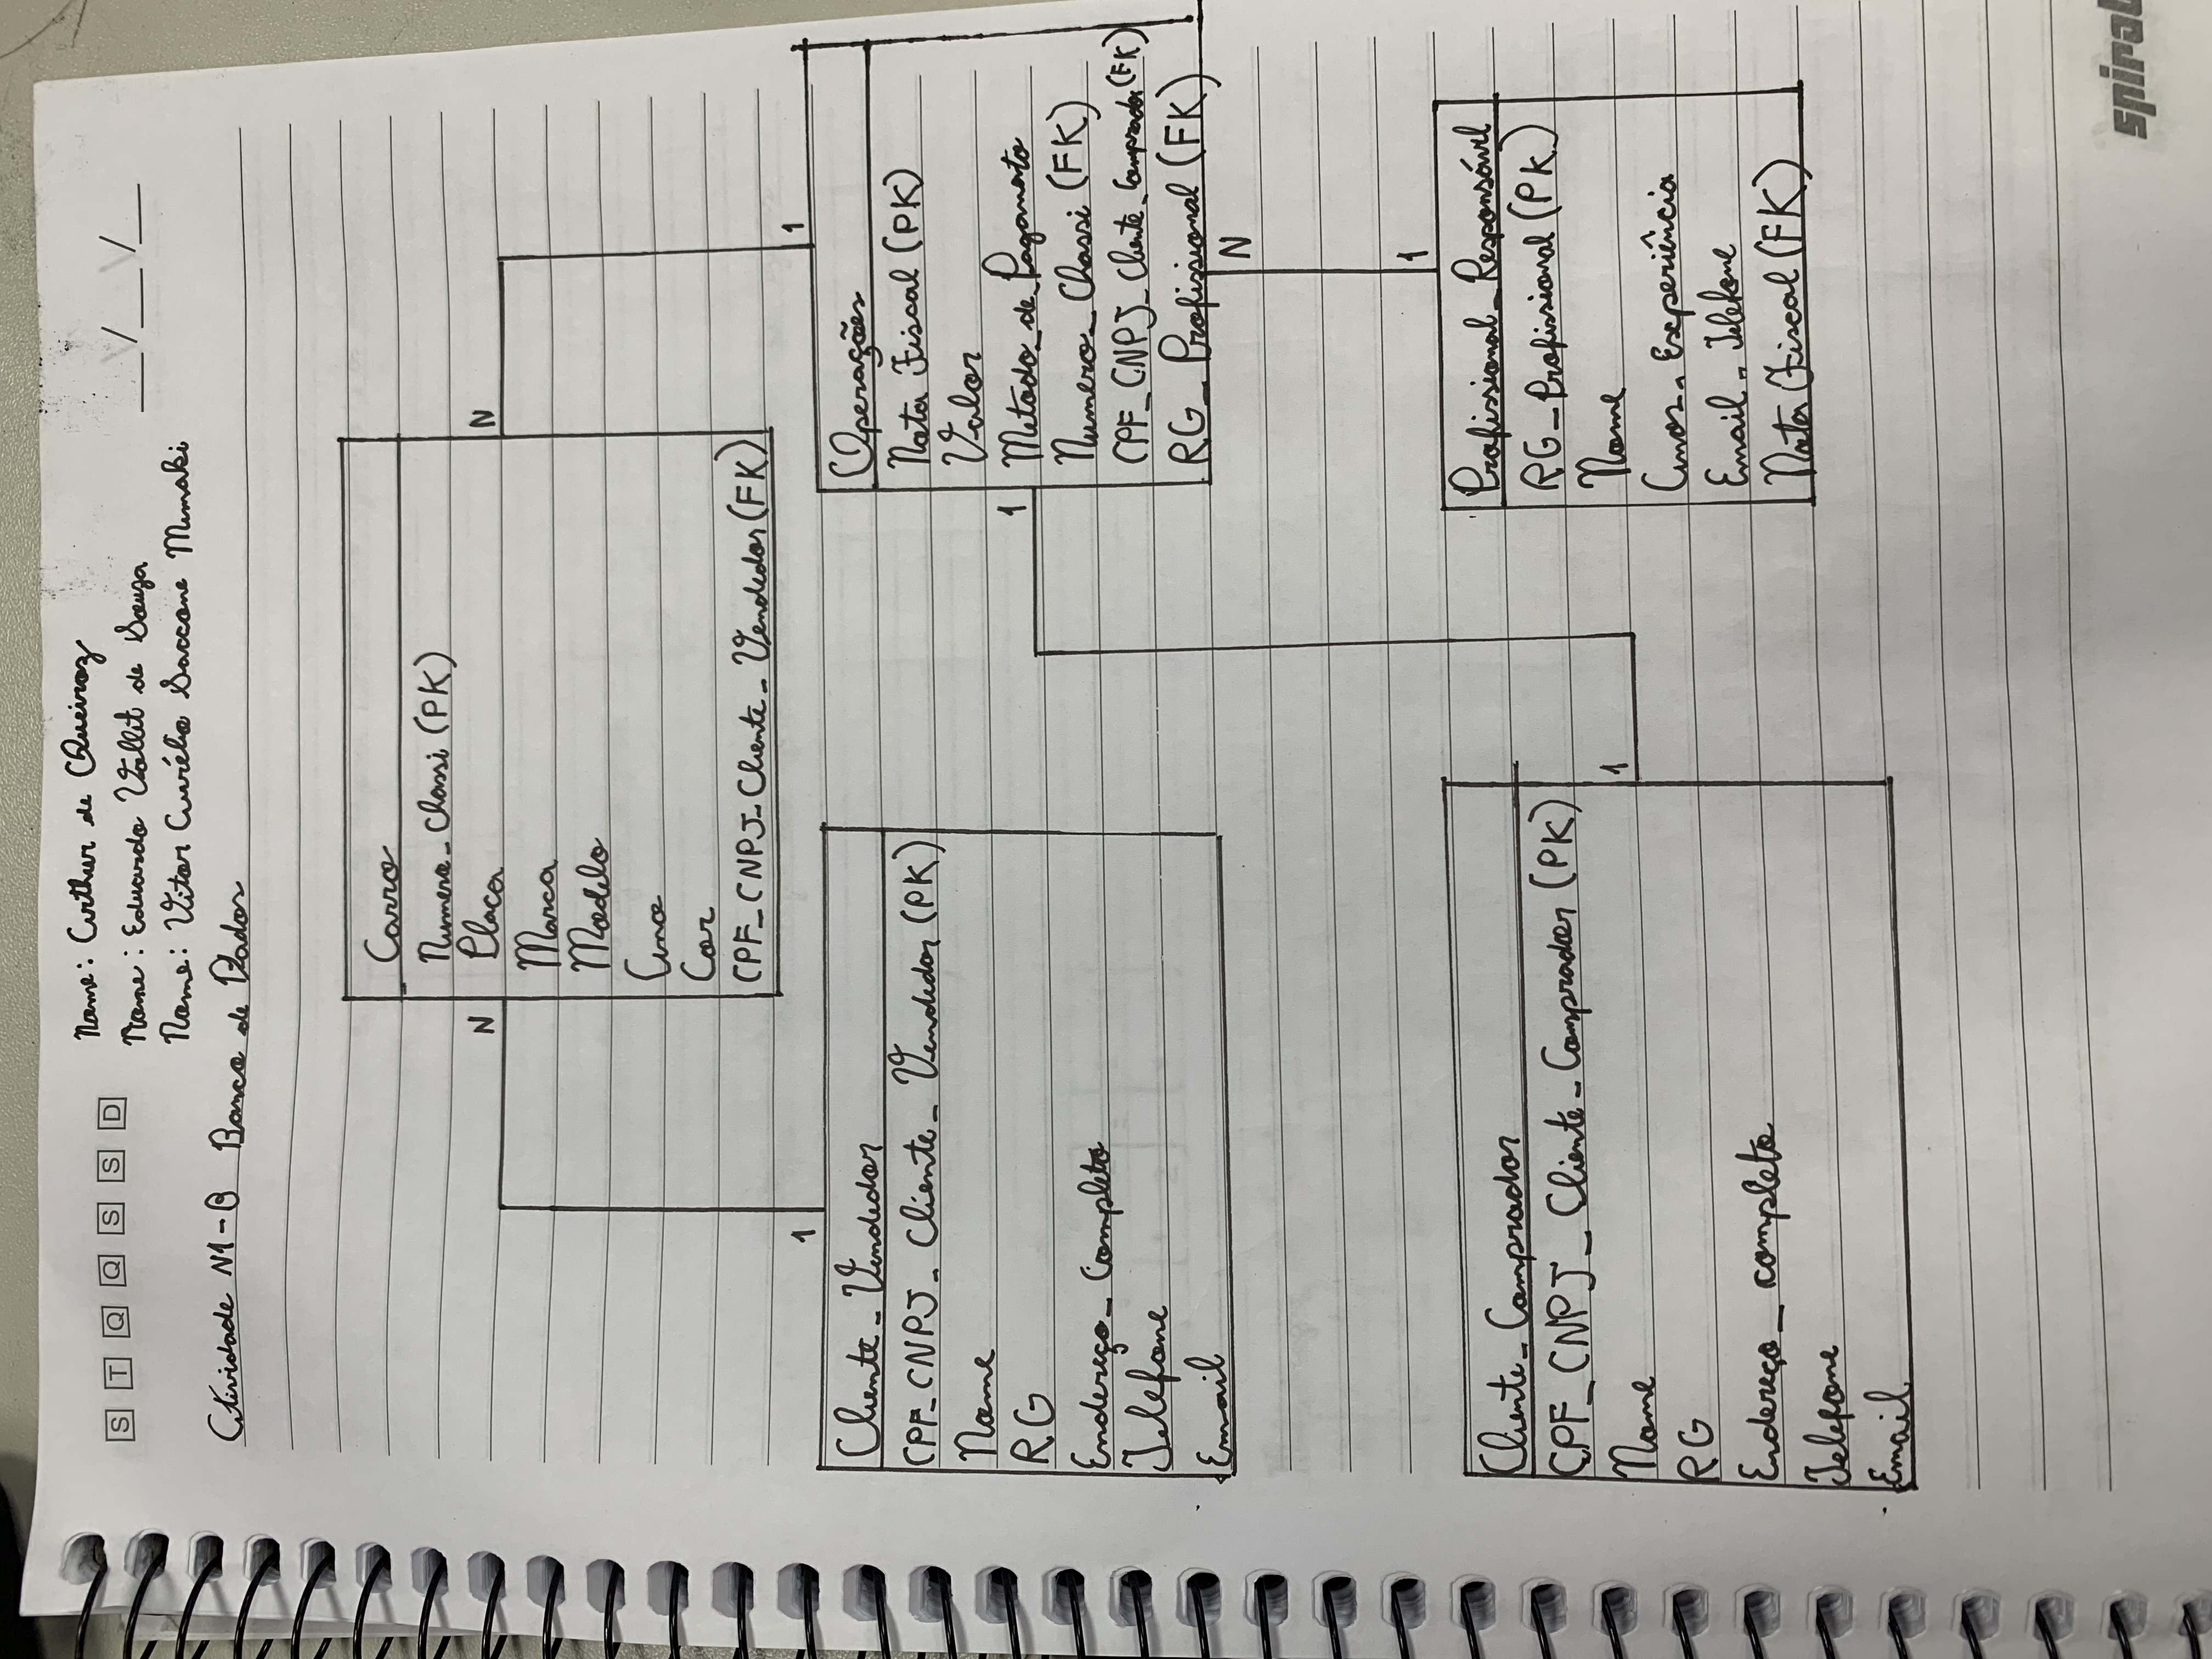 S T Q Q S S D
Nome: Arthur de Queiroz
Nome: Eduardo Vallit de Souza
Nome: Vitor Aurélio Saccone Mimaki
__/__/__
Atividade N1-B Banco de Dados
Carro
Numero_Chassi (PK)
Placa
Marca
Modelo
Ano
Cor
CPF_CNPJ_Cliente_Vendedor (FK)
N
N
1
1
Cliente_Vendedor
CPF_CNPJ_Cliente_Vendedor (PK)
Nome
RG
Endereço_Completo
Telefone
Email
Operações
Nota Fiscal (PK)
Valor
Metodo_de_Pagamato
Numero_Chassi (FK)
CPF_CNPJ_Cliente_Comprador (FK)
RG_Profissional (FK)
1
N
1
1
Cliente_Comprador
CPF_CNPJ_Cliente_Comprador (PK)
Nome
RG
Endereço_completo
Telefone
Email
Profissional_Responsável
RG_Profissional (PK)
Nome
Anos_Experiência
Email_Telefone
Nota Fiscal (FK)
spiral